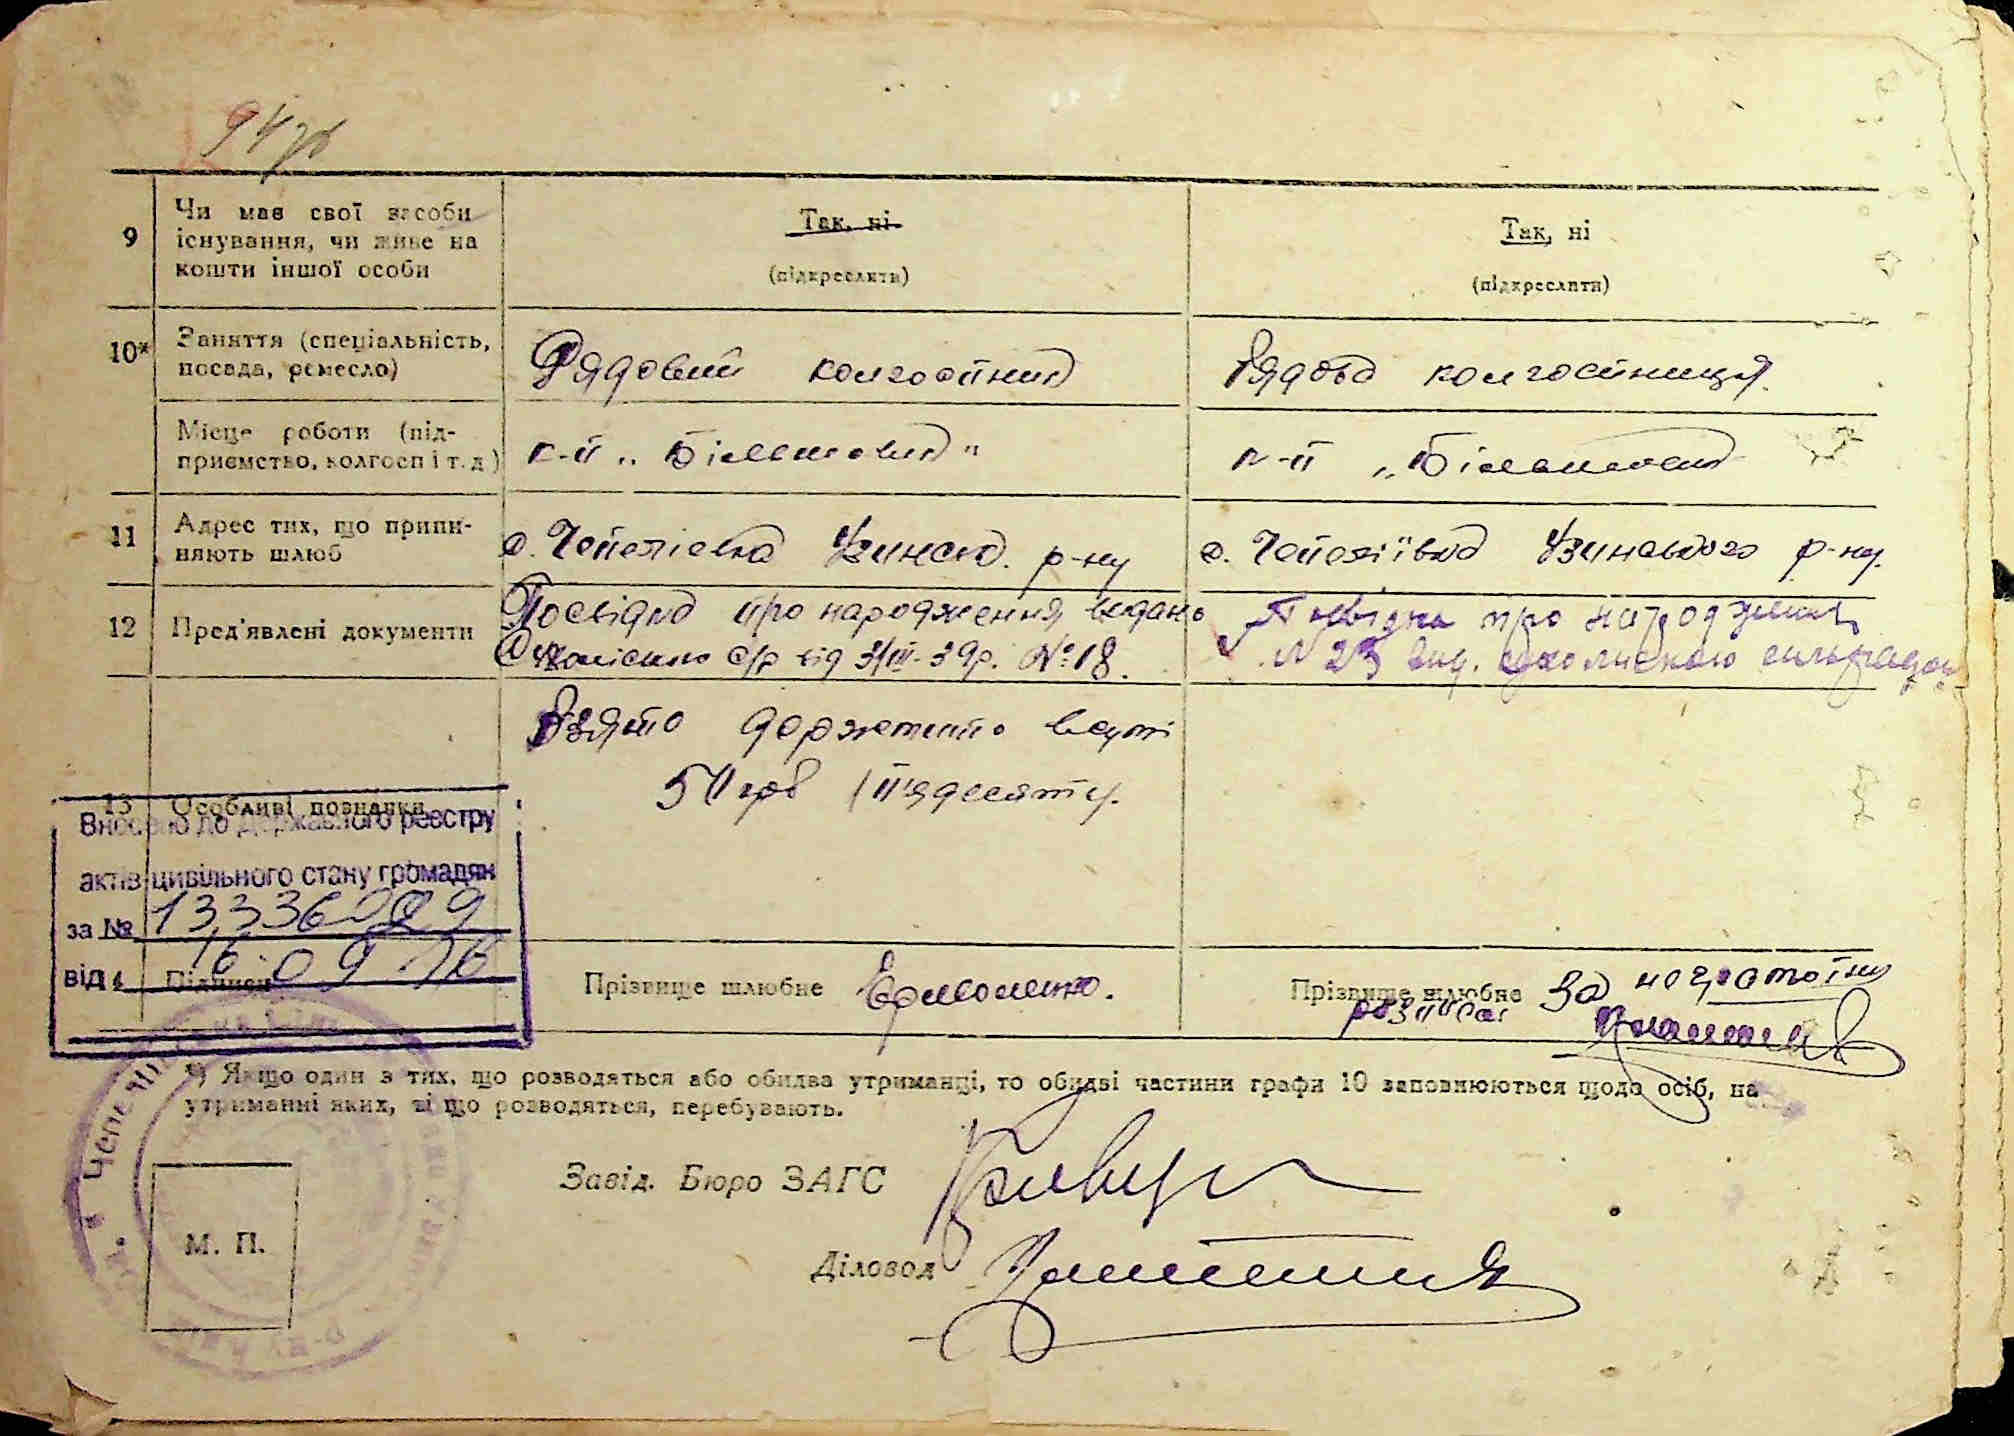 94
9
Чи має свої засоби
існування, чи живе на
кошти іншої особи
Так, ні
(підкреслити)
Так, ні
(підкреслити)
10*
Заняття (спеціальність,
посада, ремесло)
Рядовий колгоспник
Рядова колгоспниця.
Місце роботи (під-
приємство, колгосп і т. д.)
к-п „Більшовик"
к-п „Більшовик
11
Адрес тих, що припи-
няють шлюб
с. Чепеліевка Узинськ. р-ну
с. Чепеліївка Узинського р-ну.
12
Пред'явлені документи
Посвідка про народження видана
с/р від 3/III-39р. № 18.
Посвідка про народження
№ 23 вид. сільрадою
13
Особливі познанки
Взято держмито в сумі
50 крб (п'ядесят).
Внесено до Державного реєстру
актів цивільного стану громадян
за № 13336089
від 16 09 16
Підписи
Прізвище шлюбне Єрмоленко.
Прізвище шлюбне За неграмотну
розписав
*) Якщо один з тих, що розводяться або обидва утриманці, то обидві частини графи 10 заповнюються щодо осіб, на
утриманні яких, ті що розводяться, перебувають.
Завід. Бюро ЗАГС
Діловод
М. П.